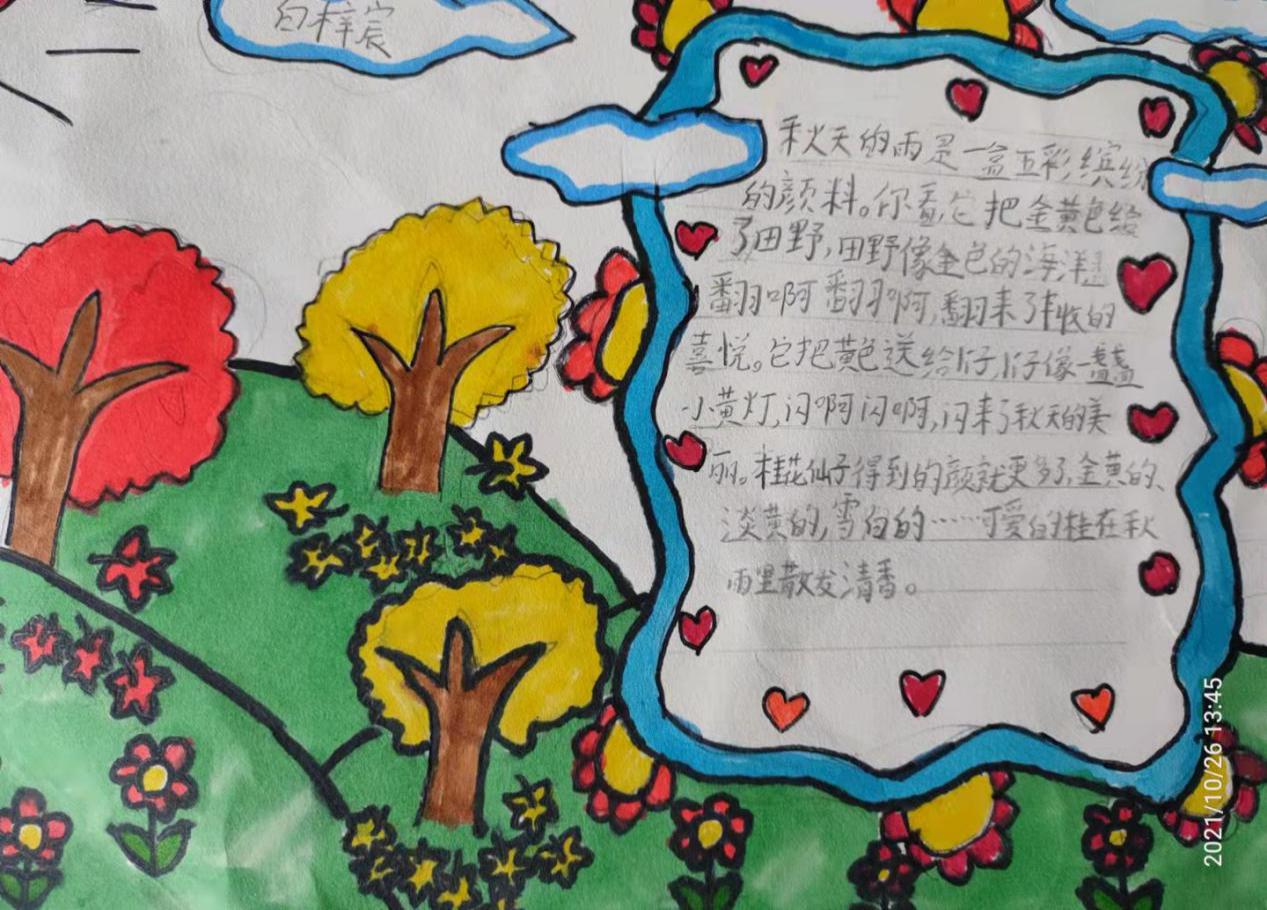 白梓宸
秋天的雨是一盒五彩缤纷
的颜料。你看,它把金黄色给
了田野,田野像金色的海洋!
翻啊翻啊,翻来了丰收的
喜悦。它把黄色送给仔,仔像一盏盏
小黄灯,闪啊闪啊,闪来了秋天的美
丽。桂花仙子得到的颜就更多了,金黄的、
淡黄的,雪白的……可爱的桂在秋
雨里散发清香。
2021/10/26 13:45